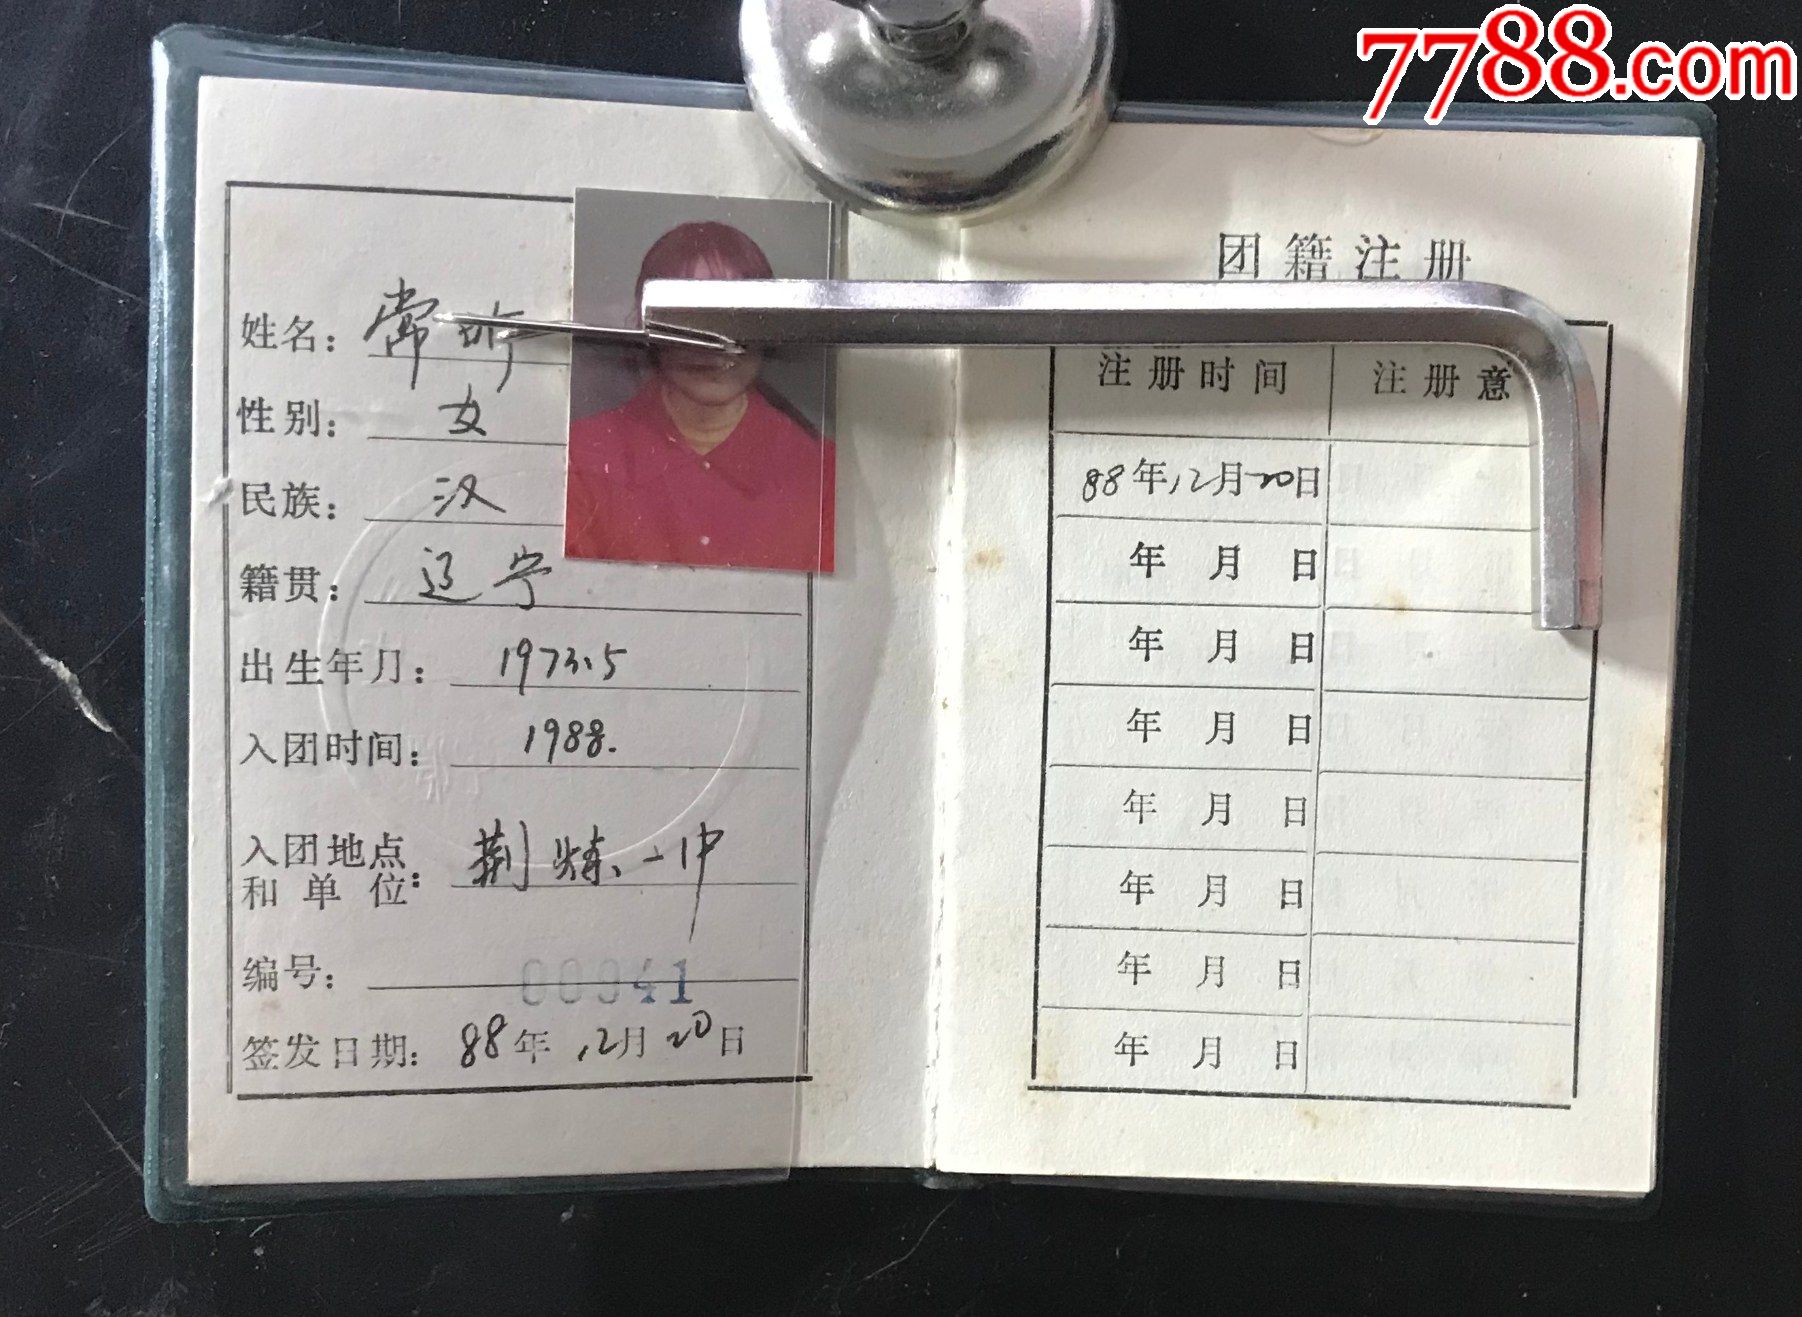 7788.com
姓名: 常
性别: 女
民族: 汉
籍贯: 辽宁
出生年月: 1973.5
入团时间: 1988.
入团地点和单位: 荆炼一中
编号: 00941
签发日期: 88年12月20日
团籍注册
注册时间 注册意
88年12月20日
年 月 日
年 月 日
年 月 日
年 月 日
年 月 日
年 月 日
年 月 日